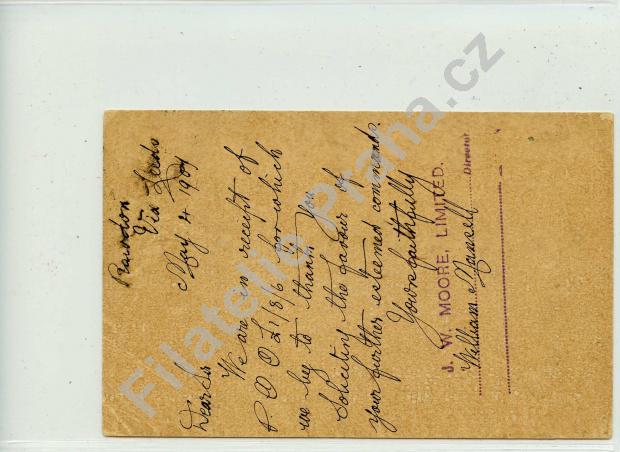 Rawdon
Via Leeds
May 4 1904
Dear Sir
We are in receipt of
P.O.O. £1/8/6 for which
we beg to thank you
Soliciting the favour of
your further esteemed commands.
Yours faithfully
J. W. MOORE, LIMITED.
William Mansell Director
Filatelie Praha.cz